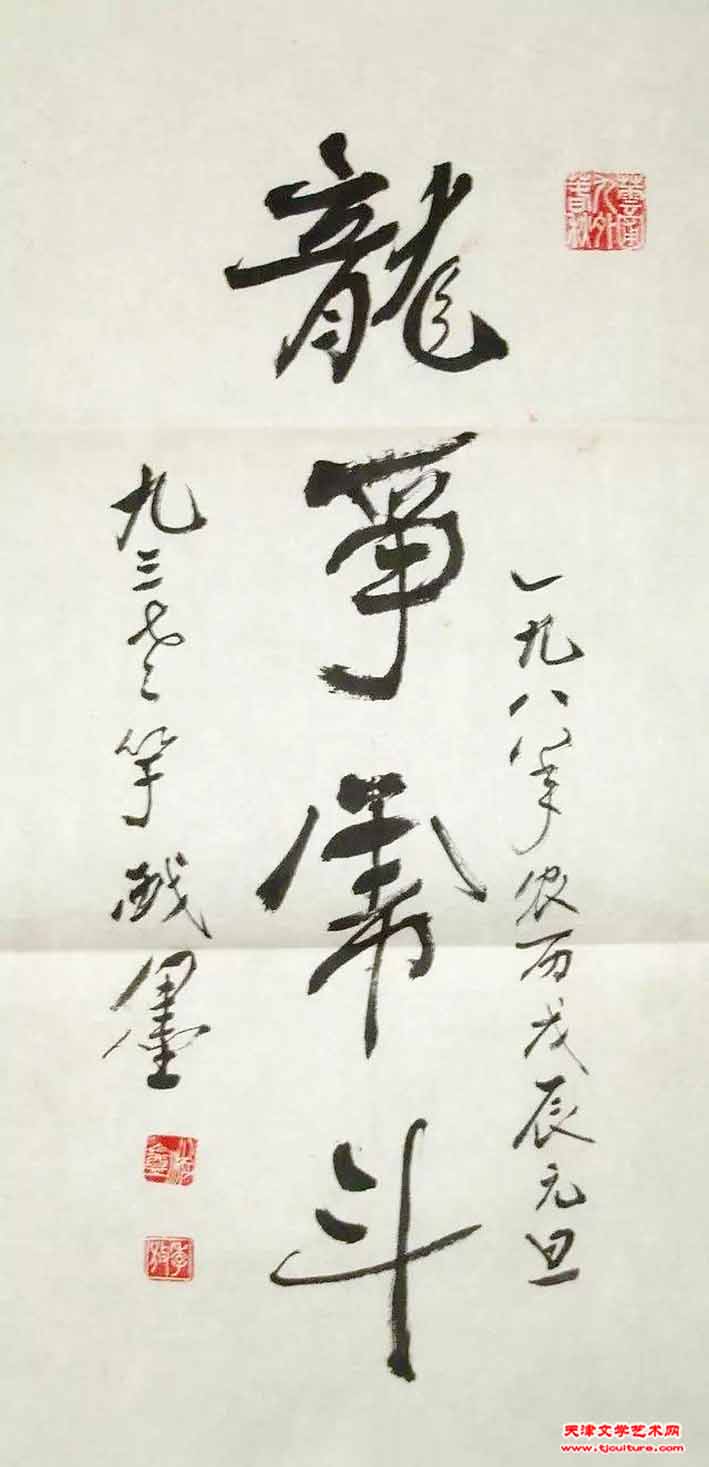 龍爭虎斗
一九八八年農历戊辰元旦
九三老 戲墨
天津文学艺术网
www.tjculture.com